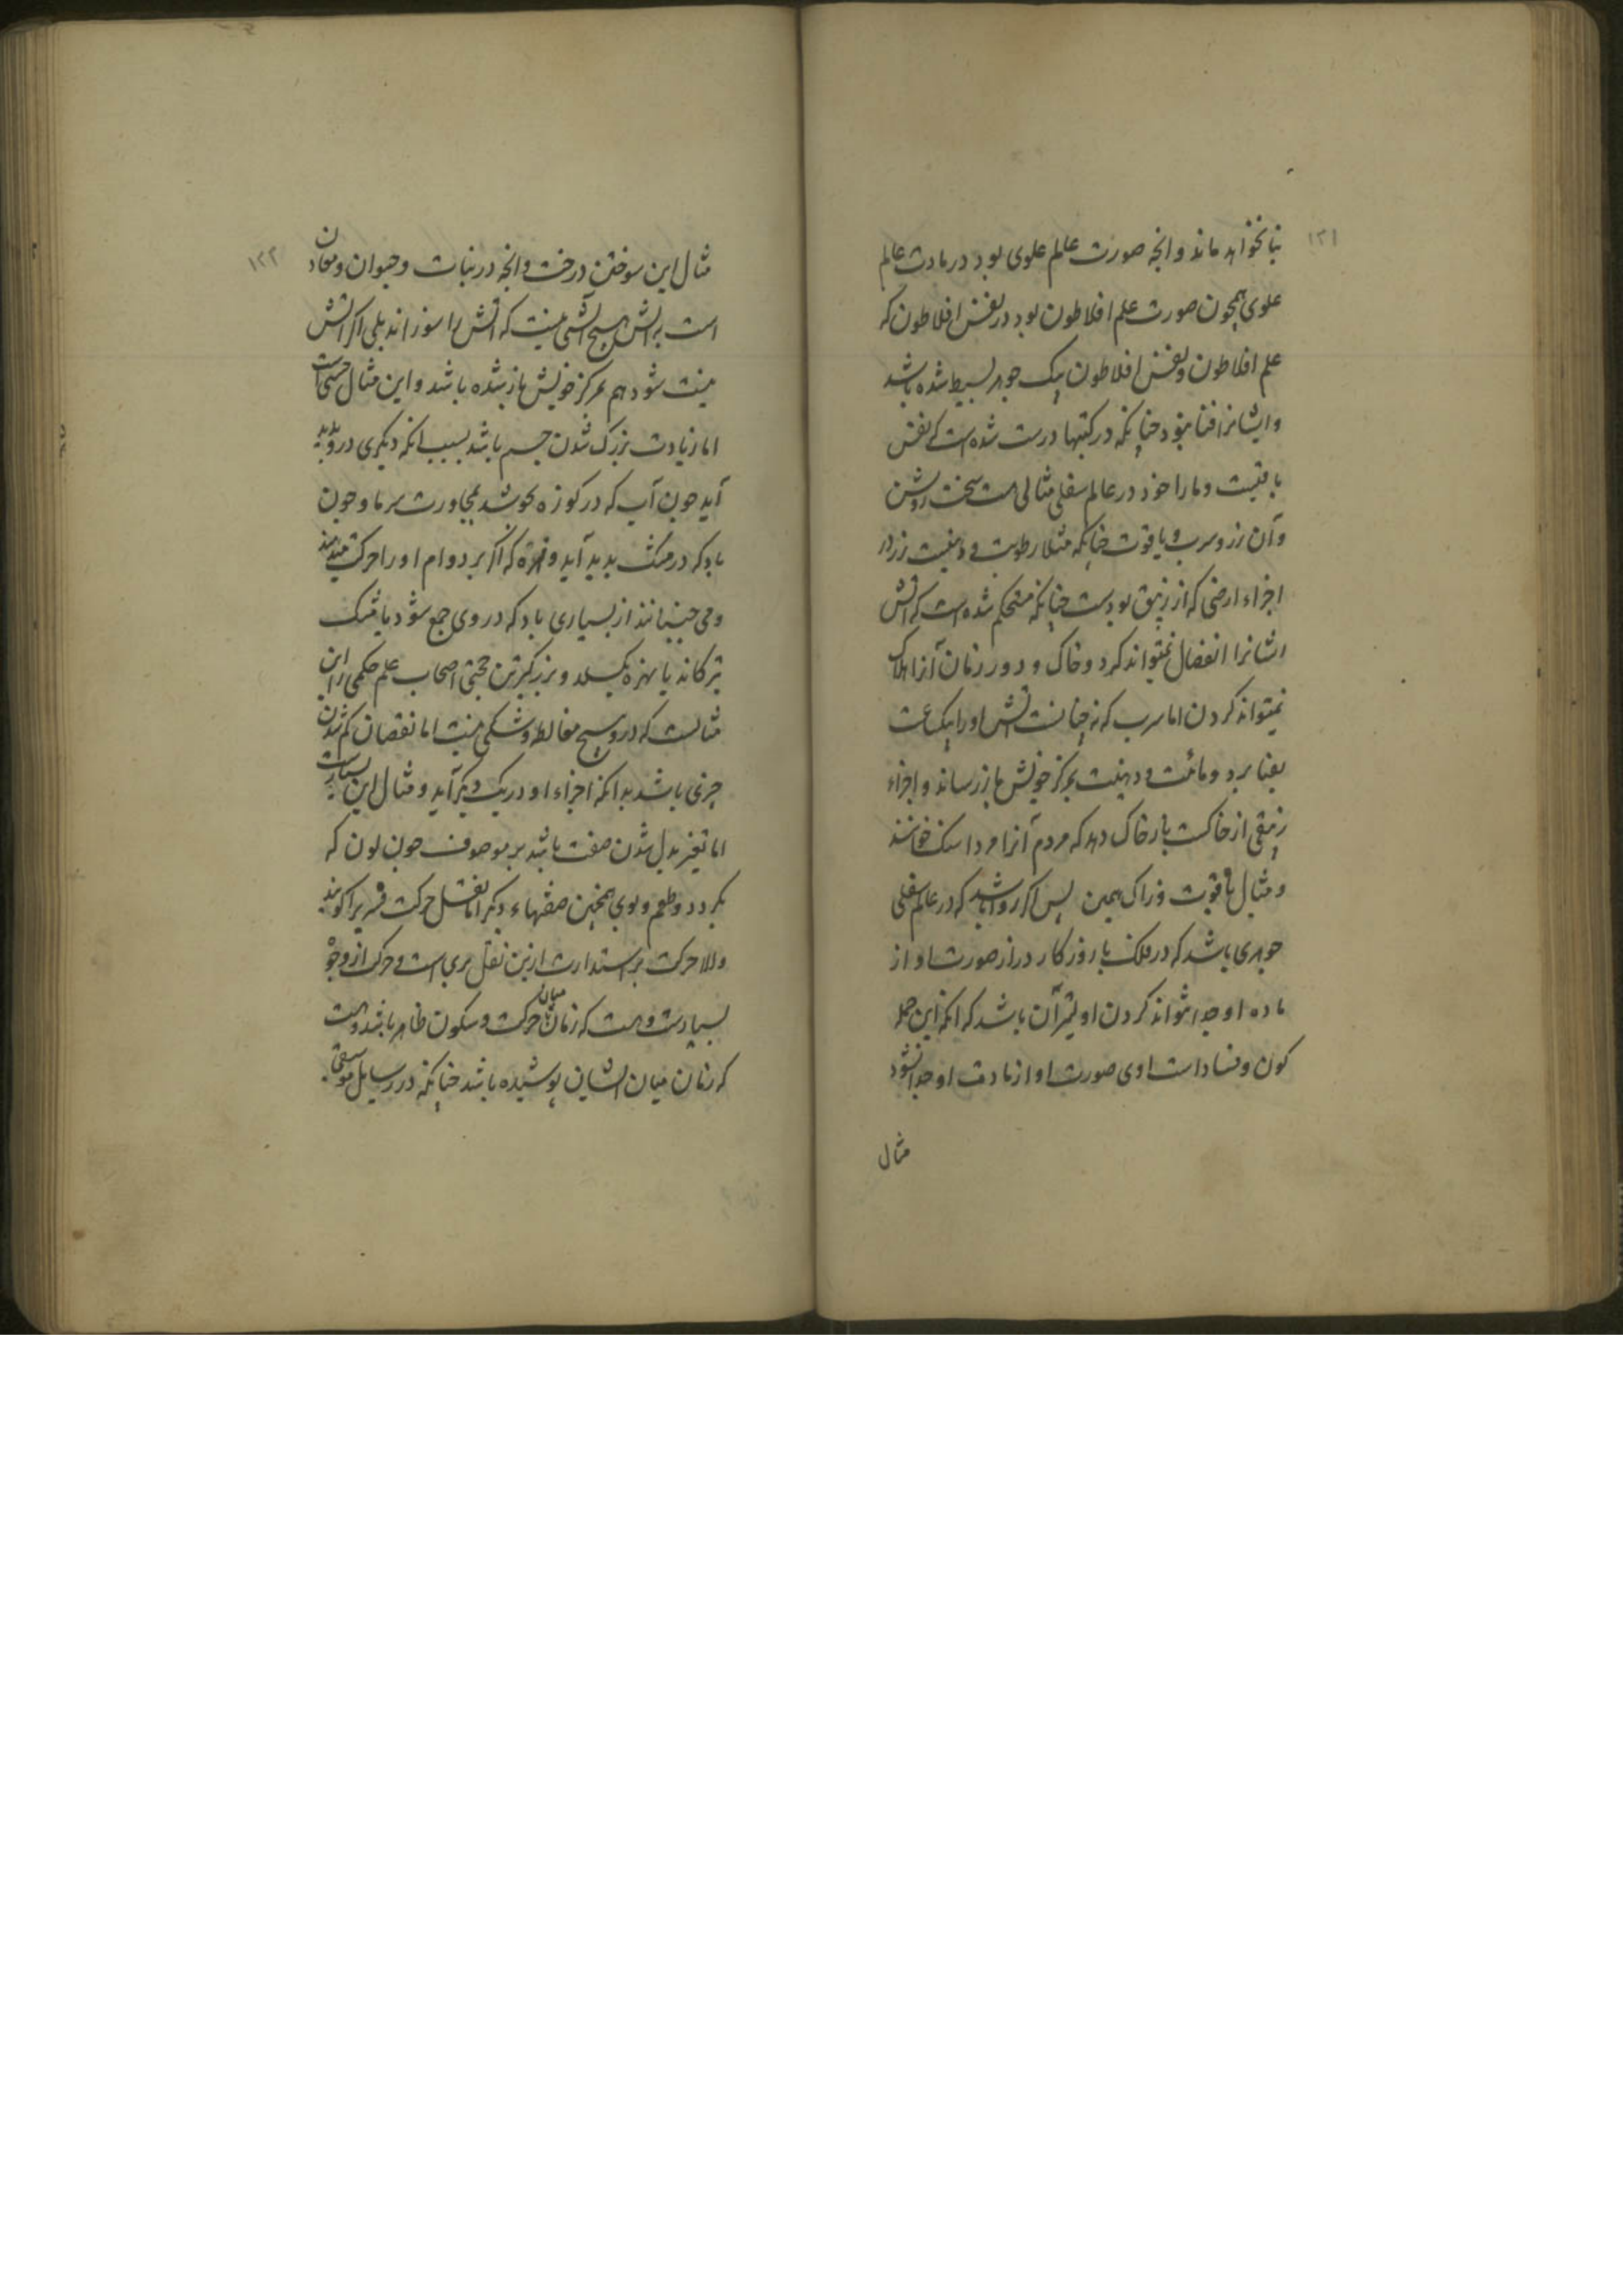 ۱۲۱
نخواهد ماند وانچه صورت عالم علوی بود در مادت عالم
علوی همچون صورت علم افلاطون بود در نفس افلاطون که
علم افلاطون و نفس افلاطون یک جوهر بسیط شده باشد
وایشانرا فنا نبود چنانکه در کتبها درست شده است که نفس
باقیست وما را خود در عالم سفلی مثالی هست سخت روشن
وآن زر وسرب ویاقوت چنانکه مثلا رطوبت و دهنیت زر در
اجزاء ارضی که از زیبق بودست چنانکه مستحکم شده است که اتش
ایشانرا انفصال نمیتواند کرد وخاک و دور زمان آنرا هلاک
نمیتواند کردن اما سرب که نه چنانست اتش اورا بیک ساعت
بفنا برد ومائیت ودهنیت بمرکز خویش باز رساند واجزاء
زیبقی از خاکست باز خاک دهد که مردم آنرا مرداسنک خوانند
ومثال یاقوت وزاک همین پس اکر روا باشد که در عالم سفلی
جوهری باشد که در فلک با روزکار دراز صورت او از
ماده او جدا نتواند کردن اولیتر آن باشد که انکه این جمله
کون وفساد است اوی صورت او از مادت او جدا نشود
مثال
۱۲۲
مثال این سوختن درخت وانچه در نبات وحیوان ومعادن
است به اتش هیچ آتشی نیست که اتش را سوزاند بلی اکر اتش
نیست شود هم بمرکز خویش باز شده باشد و این مثال حسی است
اما زیادت بزرک شدن جسم باشد بسبب انکه دیکری درو پدید
آید چون آب که در کوزه بجوشد بمجاورت سرما وچون
باد که در مشک بدید آید و که اکر بر دوام اورا حرکت میدهند
ومی جنبانند از بسیاری باد که در وی جمع شود یا مشک
بترکاند یا بهزه بکسلد و بزرکترین حجتی اصحاب علم حکمی را این
مثالست که درو هیچ مغالطه وشکی نیست اما نقصان کم شدن
چیزی باشد بدانکه اجزاء او در یک دیکر آید ومثال این بسیارست
اما تغیر بدل شدن صفت باشد بر موصوف چون لون که
بکردد وطعم وبوی همچنین صفتهاء دیکر اما نقل حرکت را کویند
والا حرکت بر استدارت ازین نقل بری است وحرکت از وجوه
بسیارست وهست که زمان میان حرکت وسکون ظاهر باشد وهست
که زمان میان ایشان پوشیده باشد چنانکه در رسایل موسیقی